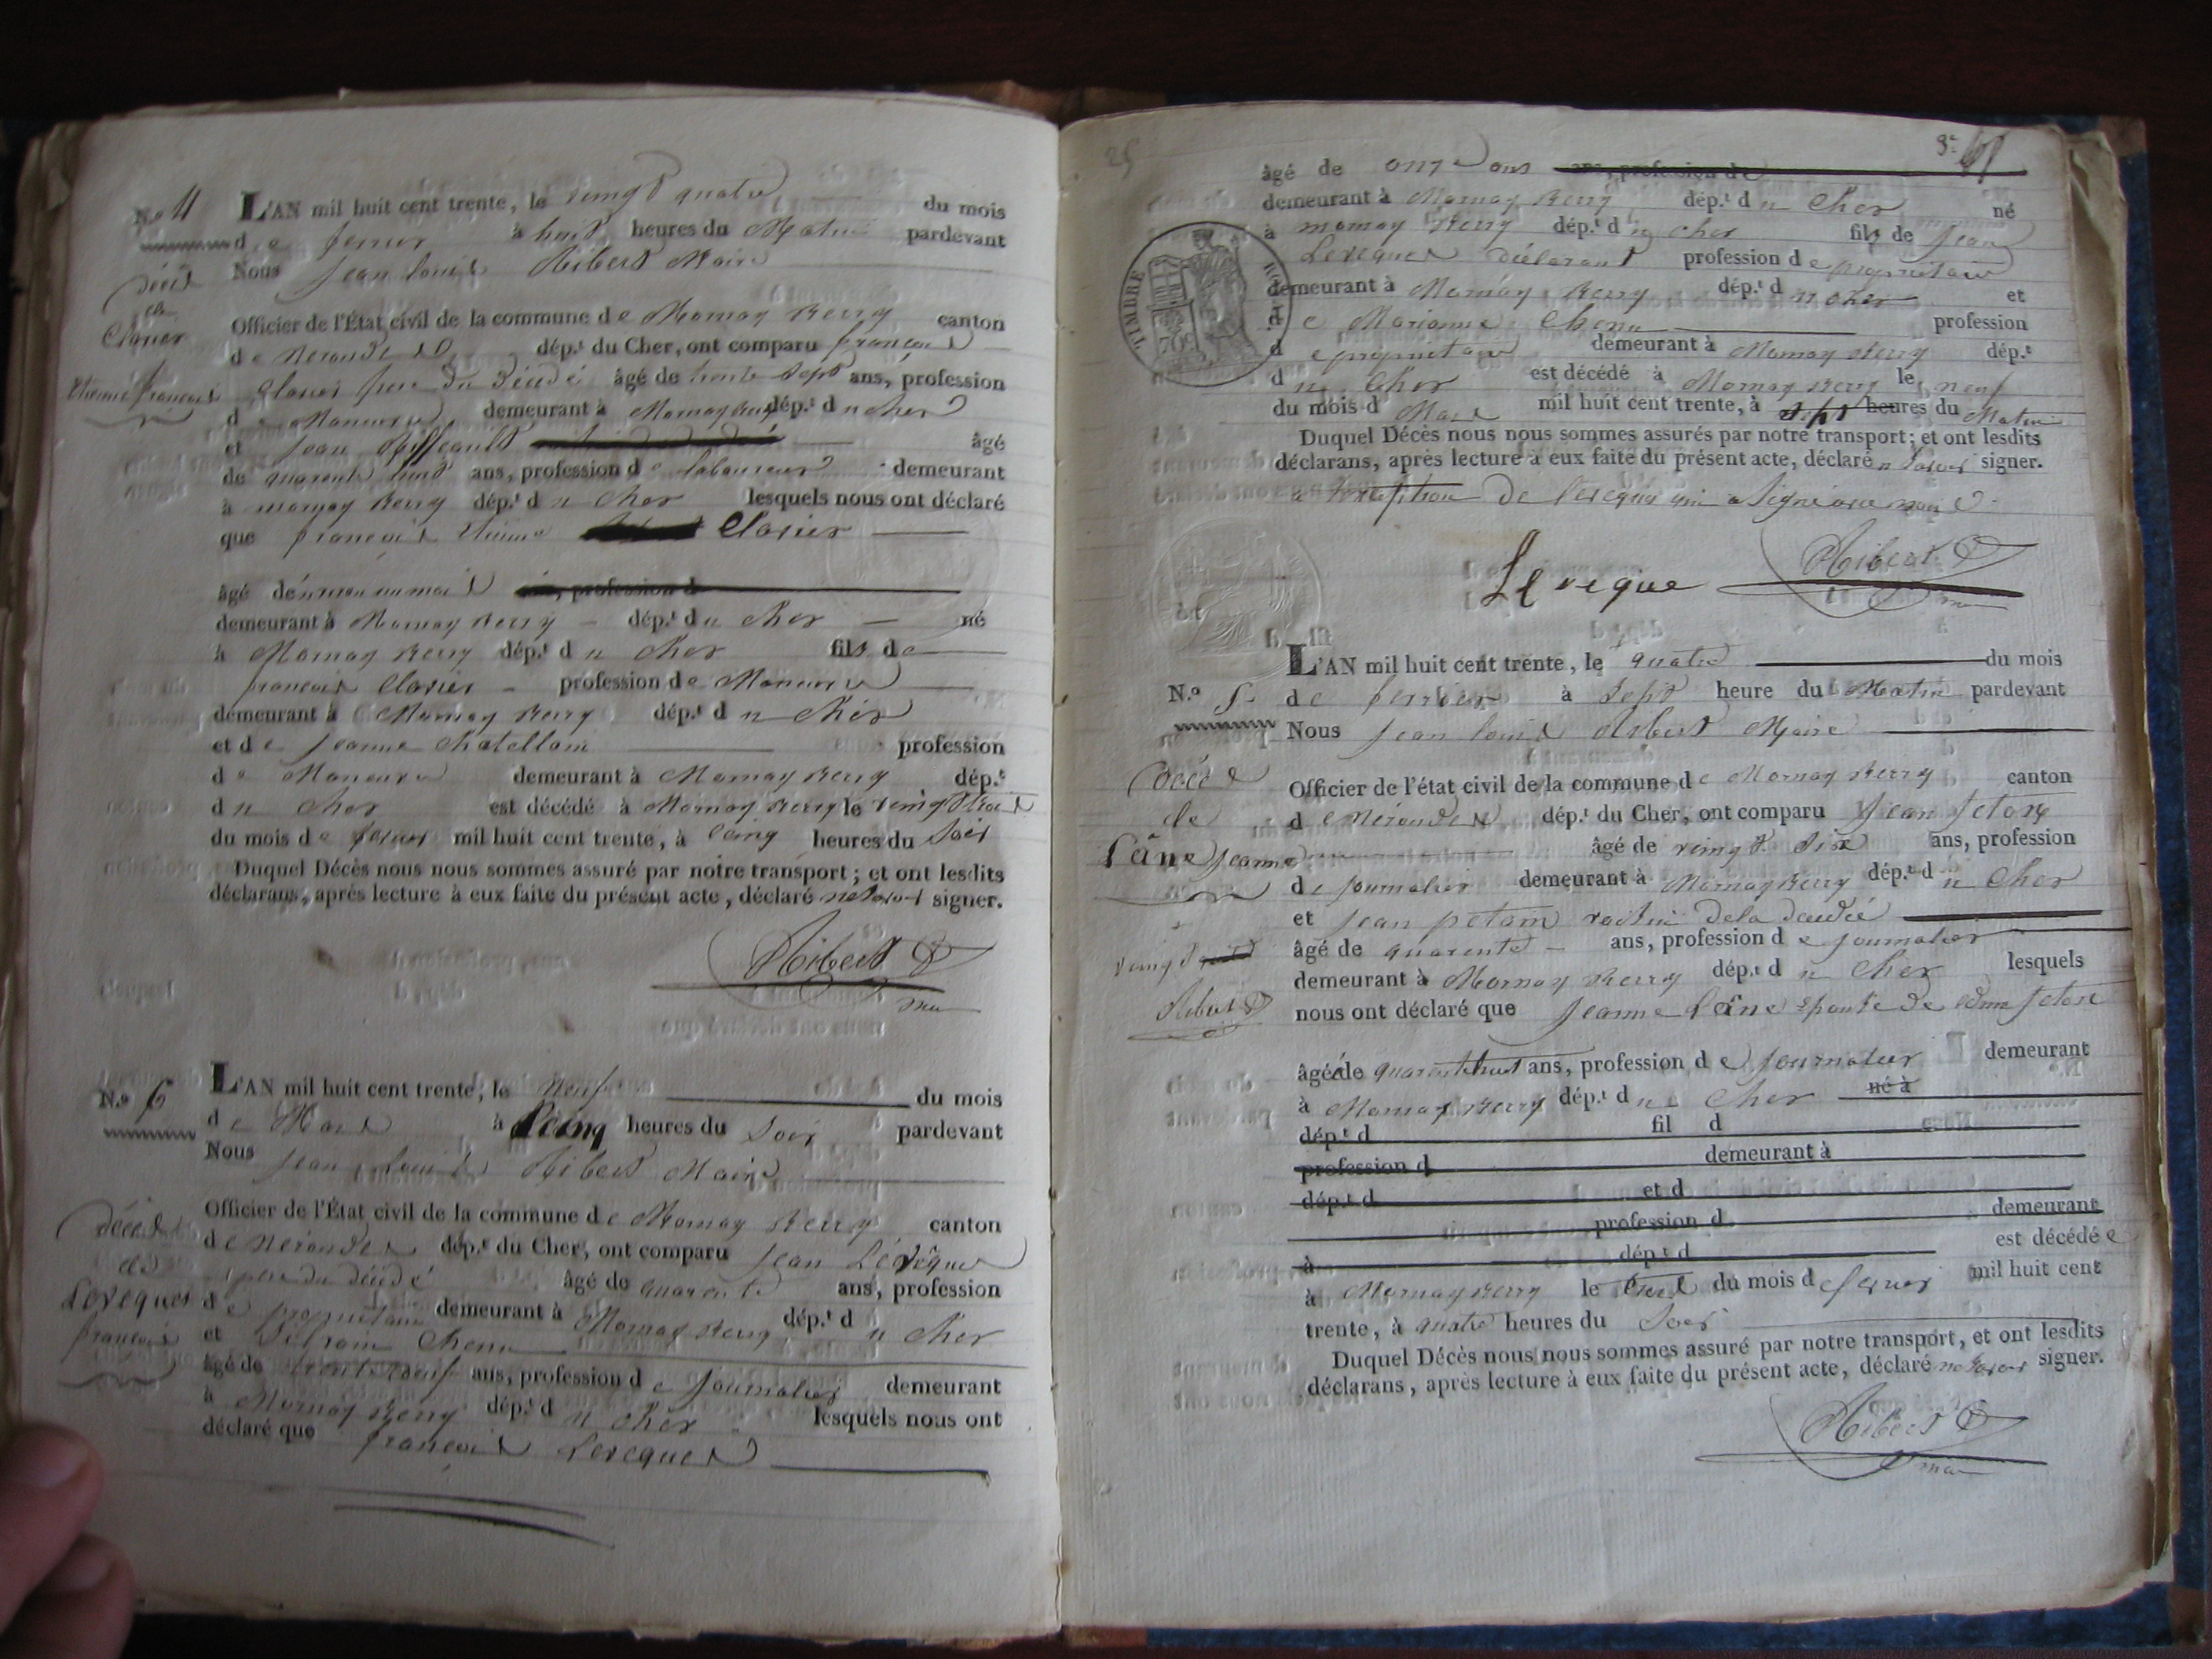 N.o 4
L'AN mil huit cent trente, le vingt quatre du mois
de fevrier à huit heures du Matin pardevant
Nous Jean louis Ribert Maire
décès
de
Clavier
Etienne françois
Officier de l'État civil de la commune de Mornay Berry canton
de Nerondes dép.t du Cher, ont comparu françois
Clavier pere du Décédé âgé de trente sept ans, profession
de Maneuvre demeurant à Mornay Berry dép.t du cher
et Jean âgé
de quarente huit ans, profession de laboureur demeurant
à mornay Berry dép.t du Cher lesquels nous ont déclaré
que françois Etienne Clavier
âgé d'environ un mois ans, profession d
demeurant à Mornay Berry dép.t du cher né
à Mornay Berry dép.t du Cher fils de
francois Clavier profession de Maneuvre
demeurant à Mornay Berry dép.t du Cher
et de Jeanne Chatellain profession
de Maneuvre demeurant à Mornay Berry dép.t
du Cher est décédé à Mornay Berry le vingt trois
du mois de fevrier mil huit cent trente, à Cinq heures du Soir
Duquel Décès nous nous sommes assuré par notre transport ; et ont lesdits
déclarans, après lecture à eux faite du présent acte, déclaré ne savoir signer.
Ribert
N.o 6
L'AN mil huit cent trente, le Neuf du mois
de Mars à Cinq heures du Soir pardevant
Nous Jean Louis Ribert Maire
décès
de
Leveque
françois
Officier de l'État civil de la commune de Mornay Berry canton
de Nerondes dép.t du Cher, ont comparu Jean Lévêque
pere du décédé âgé de quarente ans, profession
de proprietaire demeurant à Mornay Berry dép.t du Cher
et Silvain Chenu
âgé de trente neuf ans, profession de Journalier demeurant
à Mornay Berry dép.t du Cher lesquels nous ont
déclaré que françois Leveque
25
âgé de onze ans ans, profession d
demeurant à Mornay Berry dép.t du Cher né
à mornay Berry dép.t du cher fils de Jean
Leveque déclarant profession de proprietaire
demeurant à Mornay Berry dép.t du cher et
de Marianne Chenu profession
de proprietaire demeurant à Mornay Berry dép.t
du Cher est décédé à Mornay Berry le neuf
du mois d Mars mil huit cent trente, à sept heures du Matin
TIMBRE
Duquel Décès nous nous sommes assurés par notre transport ; et ont lesdits
déclarans, après lecture à eux faite du présent acte, déclaré n savoir signer.
a l'exception de leveque qui a Signé avec nous
Leveque Ribert
N.o 5.
L'AN mil huit cent trente, le quatre du mois
de fevrier à Sept heure du Matin pardevant
Nous Jean louis Ribert Maire
décés
de
Lâne Jeanne
Officier de l'état civil de la commune de Mornay Berry canton
de Nérondes dép.t du Cher, ont comparu Jean
âgé de vingt Six ans, profession
de Journalier demeurant à Mornay Berry dép.t du Cher
et Jean voisin dela décédée
âgé de quarente ans, profession de Journalier
demeurant à Mornay Berry dép.t du Cher lesquels
nous ont déclaré que Jeanne Lâne Epouse de
vingt
Ribert
âgée de quarente huit ans, profession de Journalier demeurant
à Mornay Berry dép.t du Cher né à
dép.t d fil d
profession d demeurant à
dép.t d et d
profession d demeurant
à dép.t d est décédée
à Mornay Berry le trois du mois de fevrier mil huit cent
trente, à quatre heures du Soir
Duquel Décès nous nous sommes assuré par notre transport, et ont lesdits
déclarans, après lecture à eux faite du présent acte, déclaré ne savoir signer.
Ribert